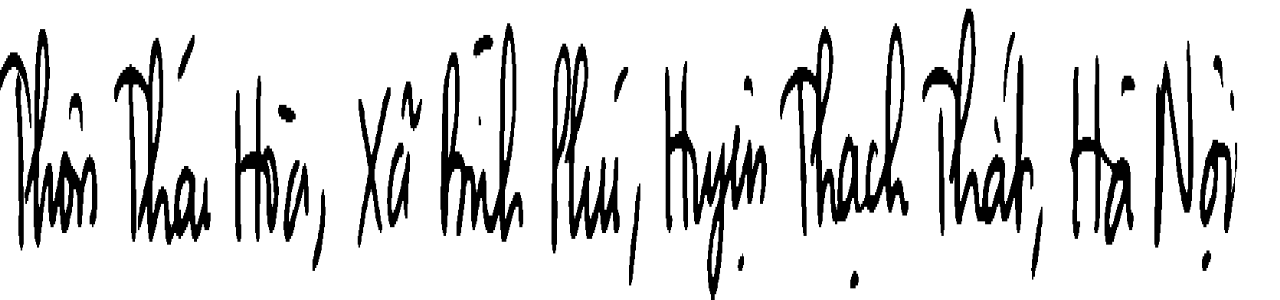 Thôn Thái Hòa, Xã Bình Phú, Huyện Thạch Thất, Hà Nội